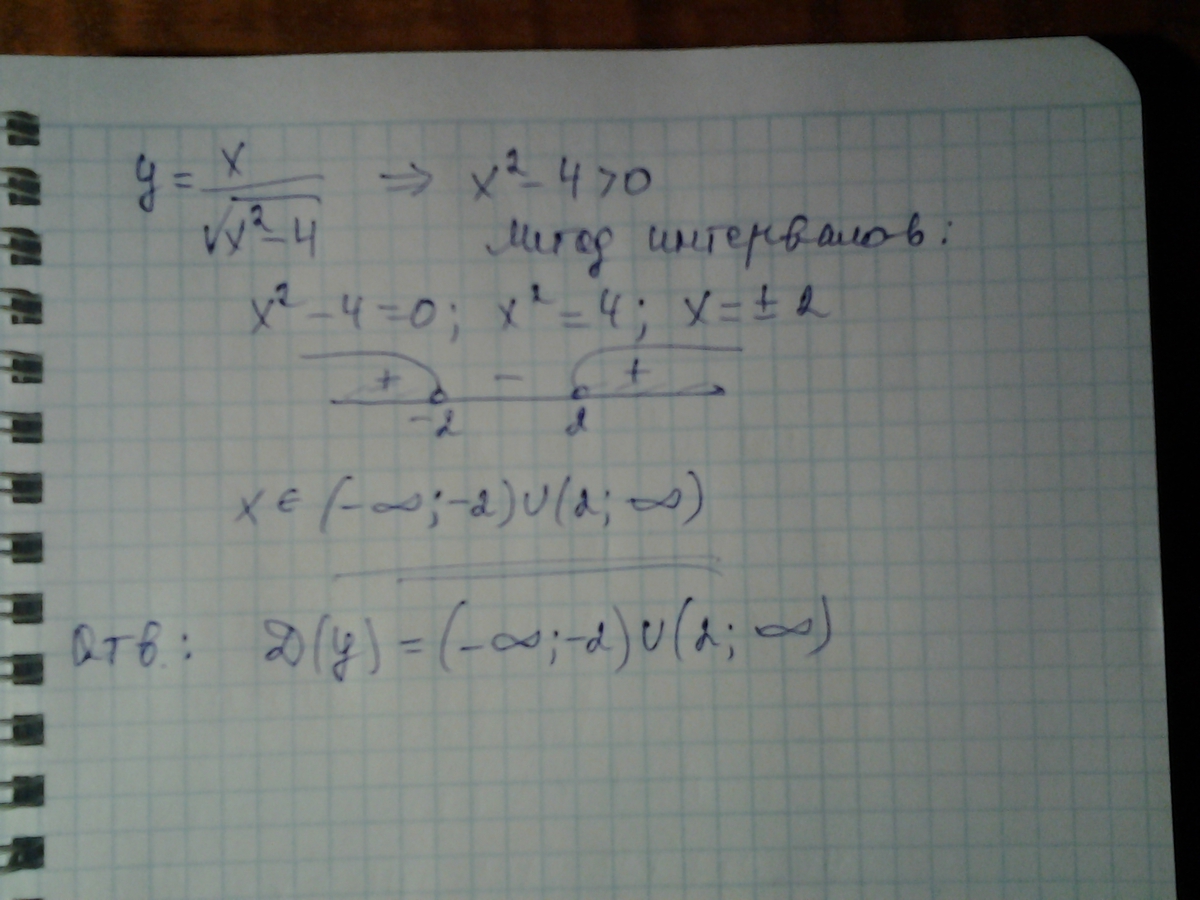 y = x/√(x² - 4) ⇒ x² - 4 > 0
Метод интервалов:
x² - 4 = 0; x² = 4; x = ± 2
+ - +
-2 2
x ∈ (-∞; -2) ∪ (2; ∞)
Отв.: D(y) = (-∞; -2) ∪ (2; ∞)